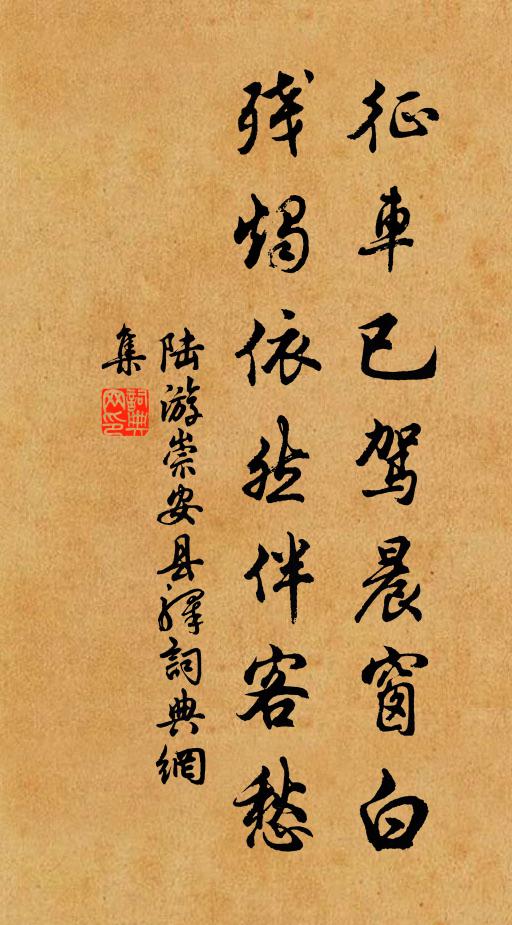 征車已駕晨窗白
残燭依然伴客愁
陆游崇安县驛詞典網
集
詞典网印